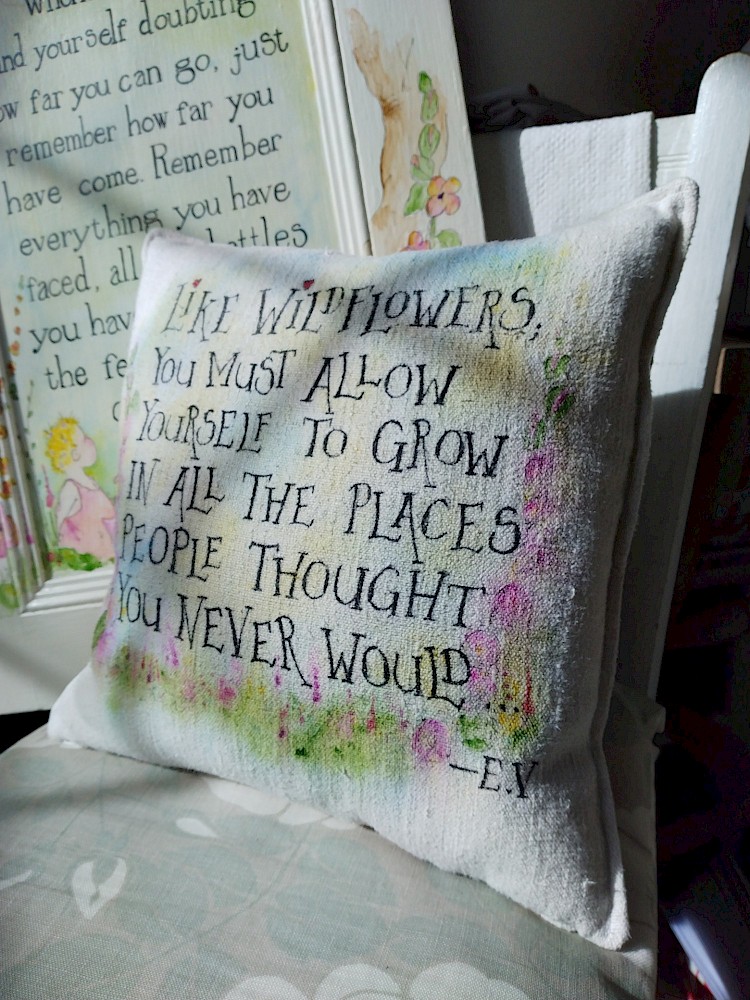 when
and yourself doubting
how far you can go, just
remember how far you
have come. Remember
everything you have
faced, all battles
you hav
the fe
LIKE WILDFLOWERS,
YOU MUST ALLOW
YOURSELF TO GROW
IN ALL THE PLACES
PEOPLE THOUGHT
YOU NEVER WOULD...
—E.V